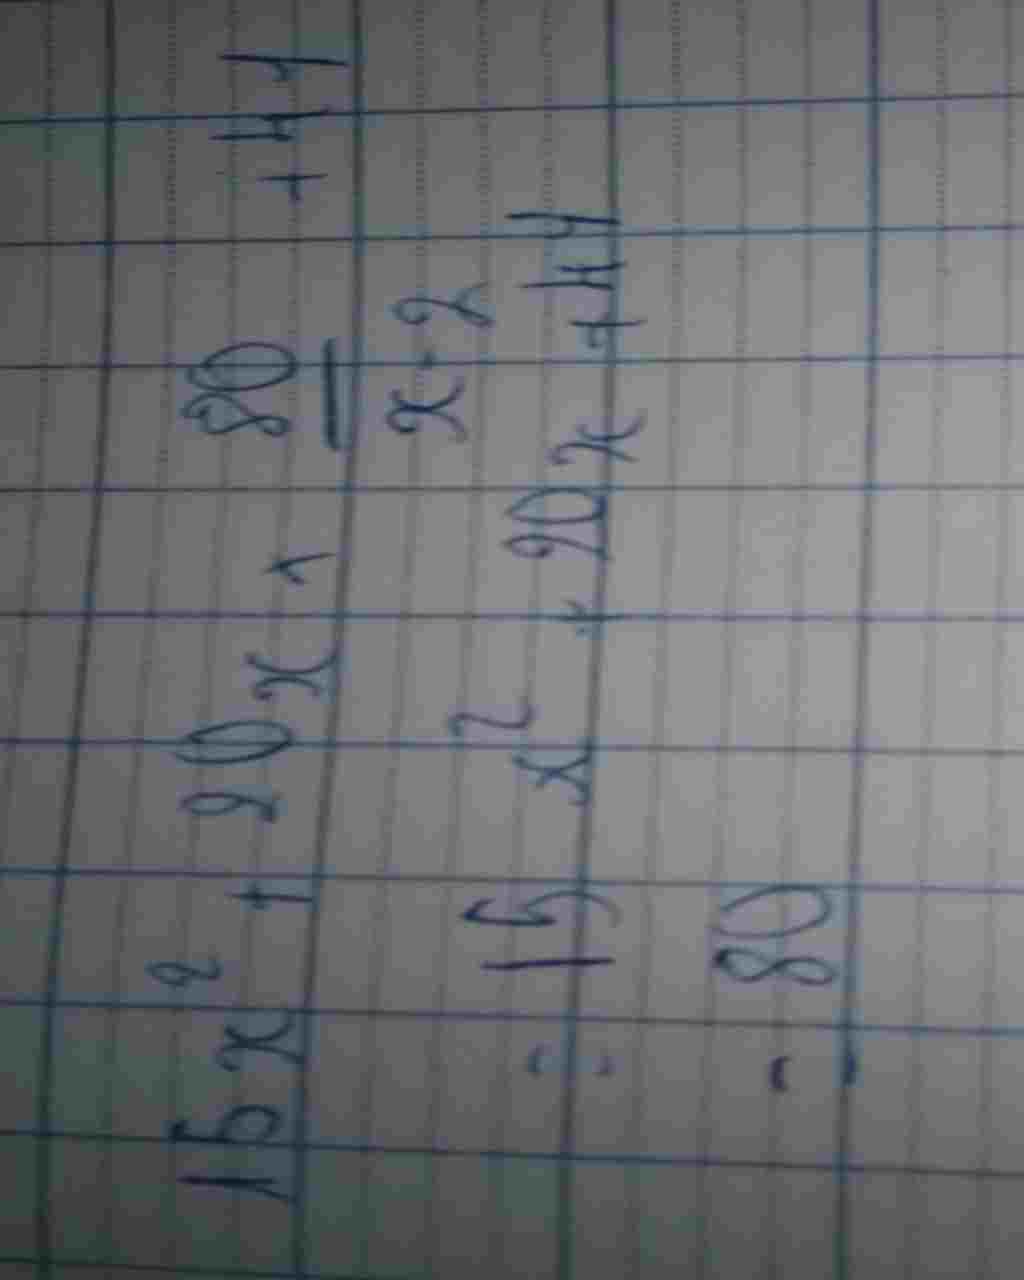 15x² + 20x 80 + 44
x-2
= 15x² + 20x + 44
= 80